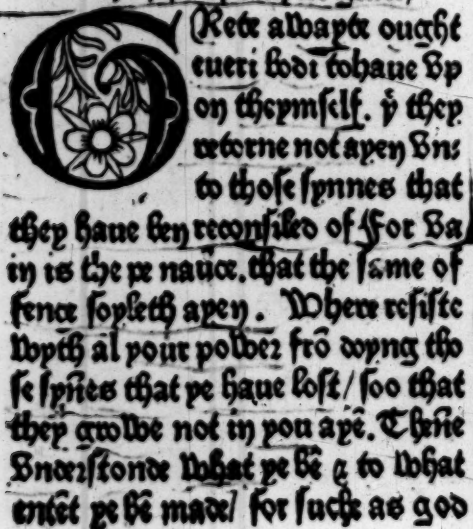 GRete awayte ought
eueri bodi tohaue vp
on theymself. yͭ they
retorne not ayen vn:
to those synnes that
they haue ben reconsiled of For va
in is the penaūce. that the same of
fence soyleth ayen. Where resiste
wyth al your power frō doyng tho
se syn̄es that ye haue lost/ soo that
they growe not in you ayē. Then̄e
vnderstonde what ye bē ⁊ to what
entēt ye bē made/ for suche as god